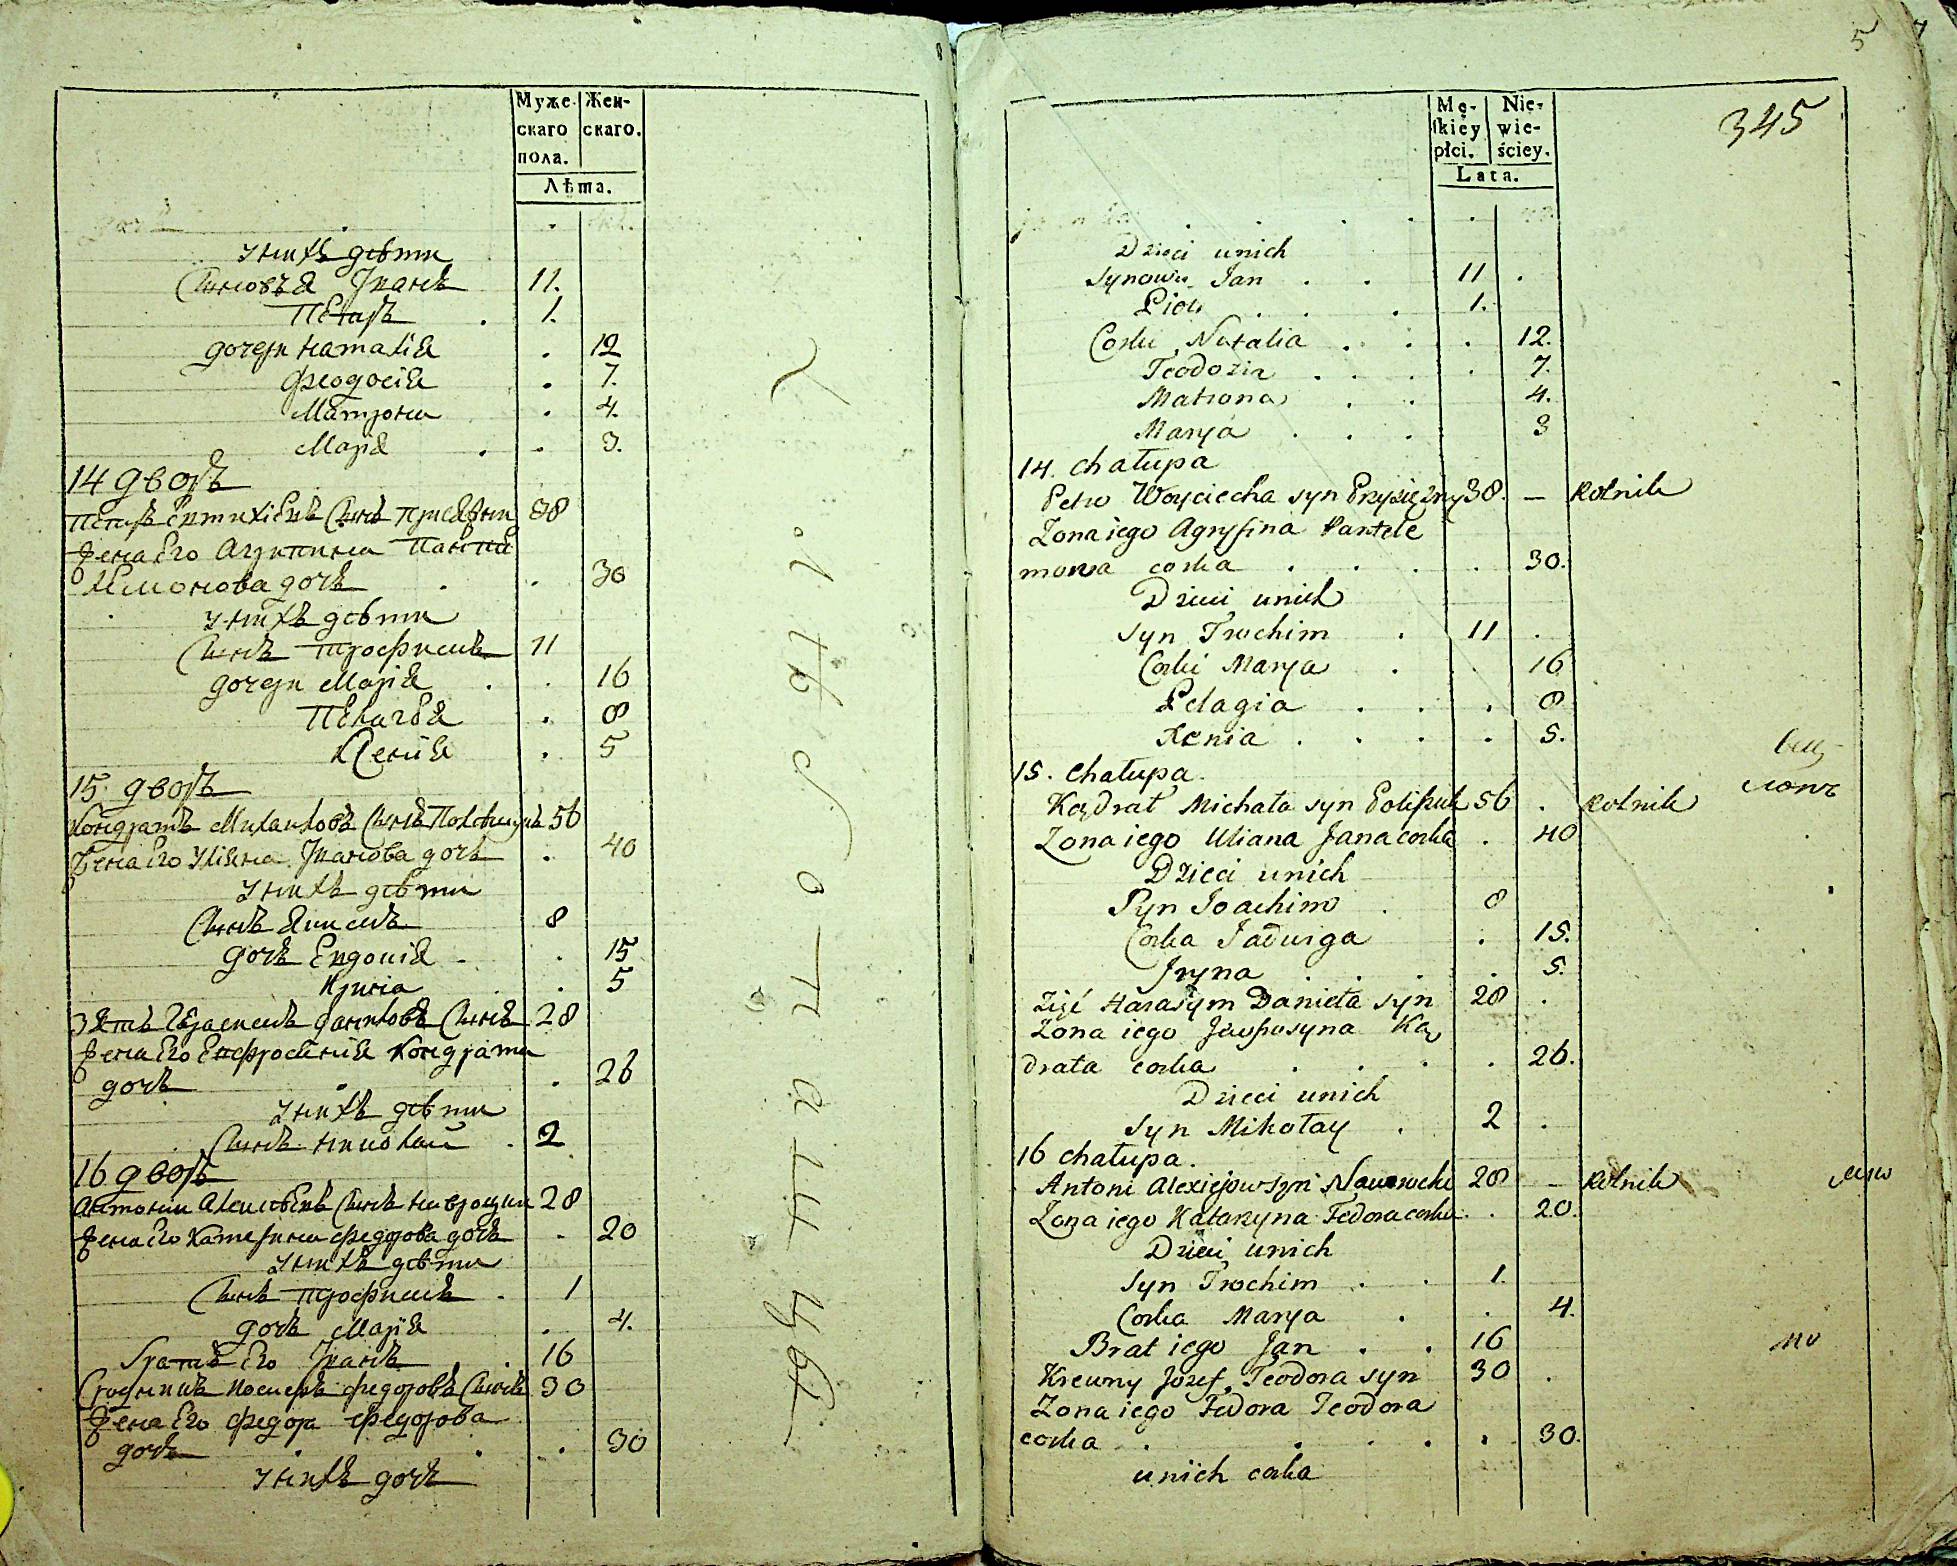 Муже-
скаго
пола.
Жен-
скаго.
Лѣта.
У нихъ дѣти
Сыновья Иванъ 11.
Петръ 1.
дочери Наталія 12
Феодосія 7.
Матрона 4.
Марія 3.
14 дворъ
Петръ сынъ 38
Жена Его Агрипина
дочь 30
У нихъ дѣти
Сынъ Трофимъ 11
дочери Марія 16
Пелагея 8
Ксенія 5
15 дворъ
Кондратъ Михайловъ Сынъ 56
Жена Его Уліяна Иванова дочь 40
У нихъ дѣти
Сынъ Якимъ 8
дочь Евдокія 15
Ирина 5
Зять Герасимъ Даниловъ Сынъ 28
Жена Его Ефросинія Кондрата
дочь 26
У нихъ дѣти
Сынъ Николай 2
16 дворъ
Антонъ Алексѣевъ Сынъ 28
Жена Его Катерина Федорова дочь 20
У нихъ дѣти
Сынъ Трофимъ 1
дочь Марія 4.
братъ Его Иванъ 16
Сродникъ Федоровъ Сынъ 30
Жена Его Федора Федорова
дочь 30
У нихъ дочь
5
345
Mę-
skiéy
płci.
Nie-
wie-
ściey.
Lata.
Dzieci unich
Synowie Jan 11
Piotr 1.
Corki Natalia 12.
Teodozia 7.
Matrona 4.
Marya 3
14. chałupa
Petro Woyciecha syn Przysiężny 38. — Rolnik
Zona iego Agryfina Pantele
mona corka 30.
Dzieci unich
Syn Trochim 11
Corki Marya 16
Pelagia 8
Xenia 5.
15. Chałupa
Kądrat Michała syn 56 Rolnik
Zona iego Uliana Jana corka 40
Dzieci unich
Syn Joachim 8
Corka Jadwiga 15.
Jryna 5.
Zięć Harasym Danieła syn 28
Zona iego Ką
drata corka 26.
Dzieci unich
Syn Mikołay 2
16 chałupa.
Antoni syn 28 — Rolnik
Zona iego Katarzyna Fedora corka 20.
Dzieci unich
Syn Trochim 1.
Corka Marya 4.
Brat iego Jan 16
Krewny Jozef Teodora syn 30
Zona iego Fedora Teodora
corka 30.
unich corka